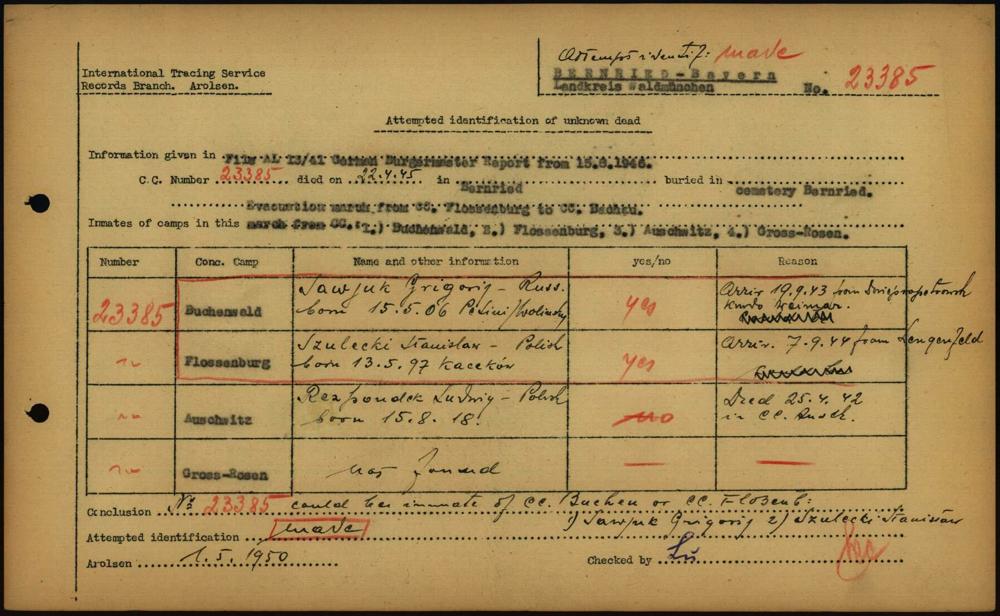 Attempts identif: made
International Tracing Service
Records Branch. Arolsen.
BERNRIED-Bayern
Landkreis Waldmünchen
No. 23385
Attempted identification of unknown dead
Information given in Film AL 13/41 German Burgermaster Report from 15.6.1946.
C.C. Number 23385 died on 22.4.45 in Bernried buried in cemetery Bernried.
Evacuation march from CC. Flossenburg to CC. Dachau.
Inmates of camps in this march from CC.: 1.) Buchenwald, 2.) Flossenburg, 3.) Auschwitz, 4.) Gross-Rosen.
Number Conc. Camp Name and other information yes/no Reason
23385 Buchenwald Sawjuk Grigorij - Russ. born 15.5.06 yes Arriv 19.9.43 from Dniepropetrowsk Kmdo Weimar.
Flossenburg Szulecki Stanislaw - Polish born 13.5.97 Kaceków yes Arriv. 7.9.44 from Lengenfeld
Auschwitz Respondek Ludwig - Polish born 15.8.18. no Died 25.4.42 in CC. Ausch.
Gross-Rosen not found
Conclusion No 23385 could be inmate of CC. Buchen or CC. Floßenb:
1) Sawjuk Grigorij 2) Szulecki Stanislaw
Attempted identification made
Arolsen 1.5.1950 Checked by